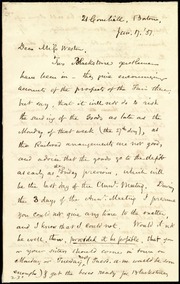 21 Cornhill, Boston,
Jan. 17. '57.
Dear Miss Weston,
Two Blackstone gentlemen
have been in — they give encouraging
account of the prospect of the Fair there,
but say, that it will not do to risk
the sending of the Goods as late as the
Monday of that week (the 27th day), as
the Railroad arrangements are not good,
and advise that the goods go to the depot
as early as Friday previous, which will
be the last day of the Ann'l. Meeting. During
the 3 days of the Ann'l Meeting I presume
you could not give any hour to the matter,
and I know that I could not. Would it not
be well, then, provided it be possible, that you
or your sisters should come in town on
Monday or Tuesday (Tuesd. a.m. would be soon
enough) & get the boxes ready for Blackstone,